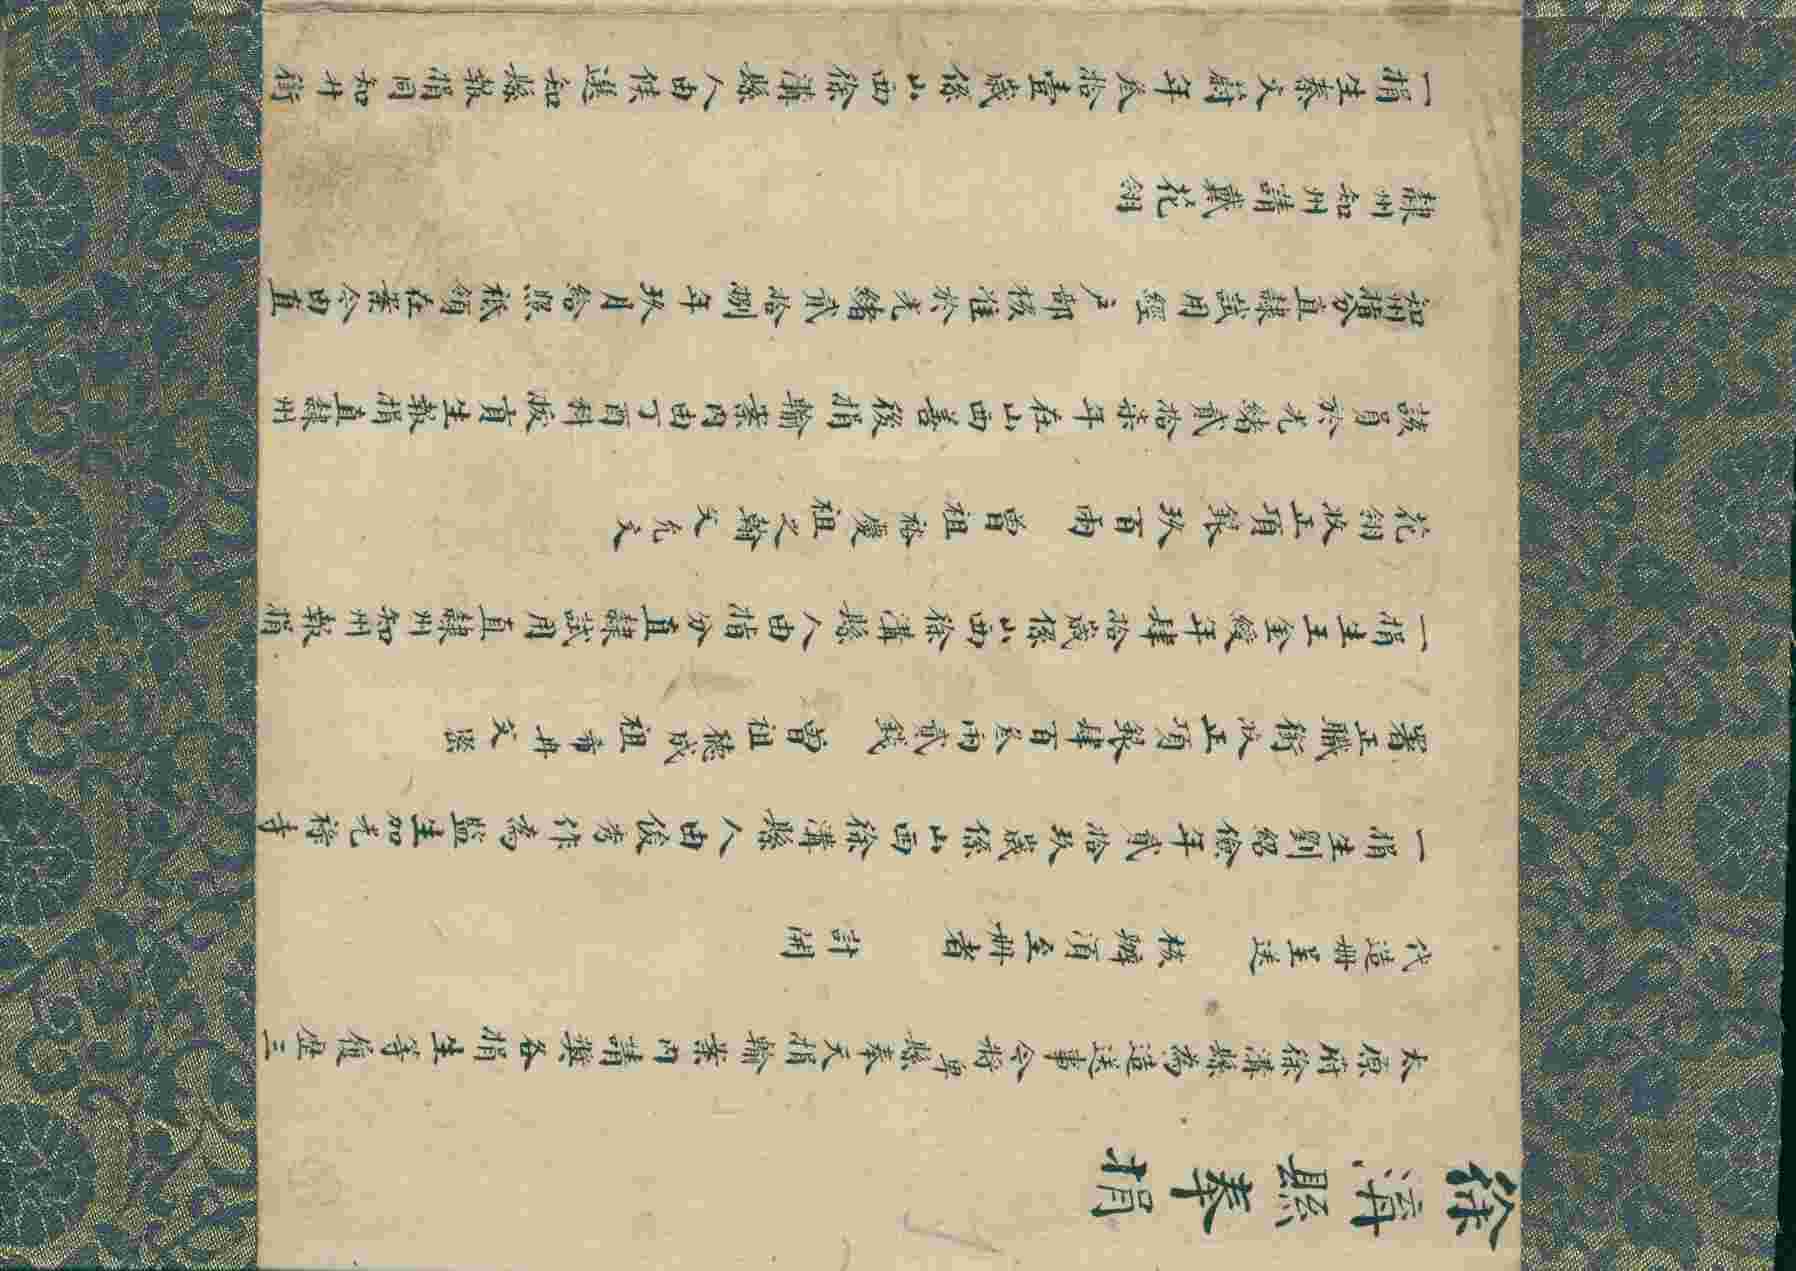 徐溝縣奉捐
太原府徐溝縣為造送事今將卑縣奉天捐輸案內請獎各捐生等履歷三
代造冊呈送 核辦須至冊者 計開
一捐生劉紹儉年貳拾玖歲係山西徐溝縣人由俊秀作為監生加光祿寺
署正職銜收正項銀肆百叁兩貳錢 曾祖德成祖希冉父
一捐生王金綬年肆拾歲係山西徐溝縣人由指分直隸試用直隸州知州報捐
花翎收正項銀玖百兩 曾祖裕慶祖之翰父允文
該員於光緒貳拾柒年在山西善後捐輸案內由丁酉科拔貢生報捐直隸州
知州指分直隸試用經戶部核准於光緒貳拾捌年玖月給照祗領在案今由直
隸州知州請戴花翎
一捐生秦文蔚年叁拾壹歲係山西徐溝縣人由候選知縣報捐同知升銜